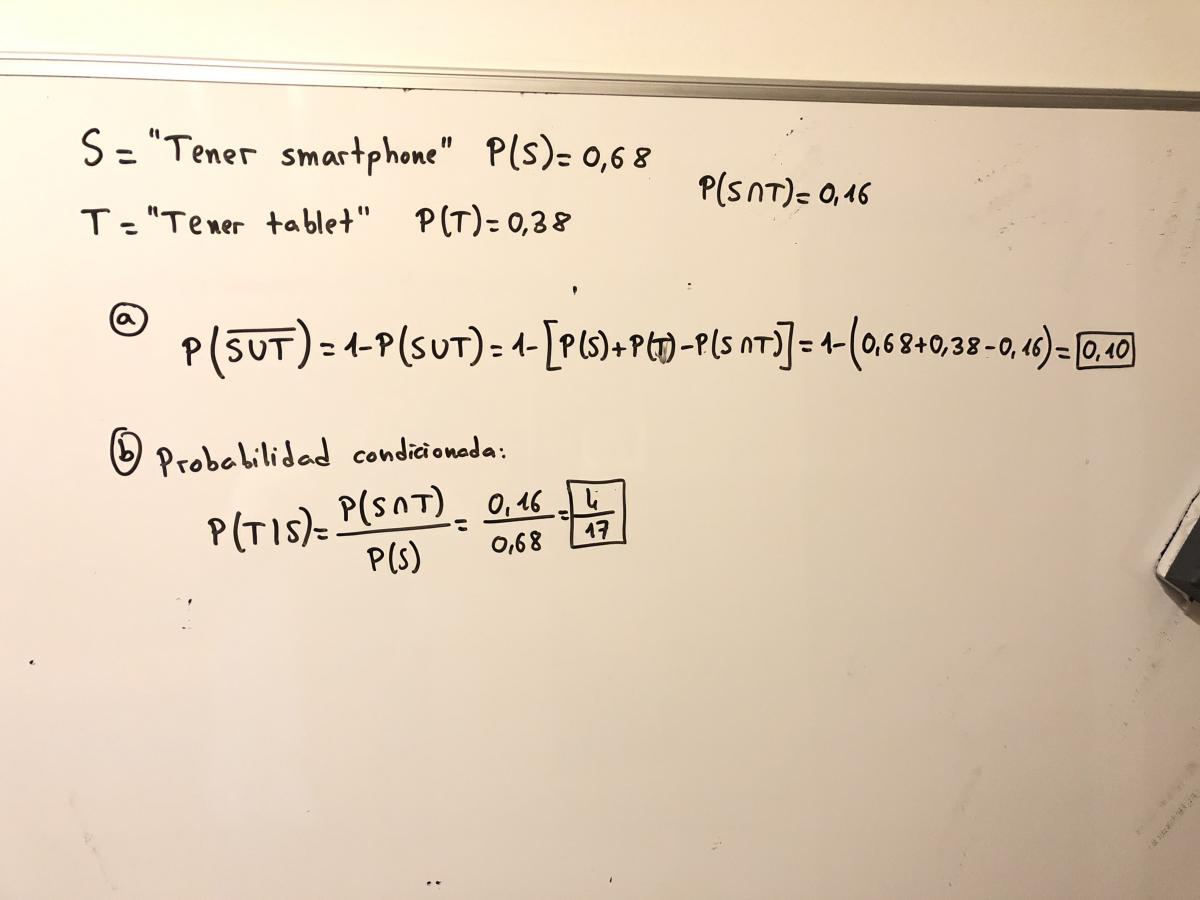 S = "Tener smartphone" P(S) = 0,68
P(S∩T) = 0,16
T = "Tener tablet" P(T) = 0,38
ⓐ
P(S̅U̅T̅) = 1-P(SUT) = 1-[P(S)+P(T)-P(S∩T)] = 1-(0,68+0,38-0,16) = 0,10
ⓑ Probabilidad condicionada:
P(T|S) = P(S∩T)/P(S) = 0,16/0,68 = 4/17